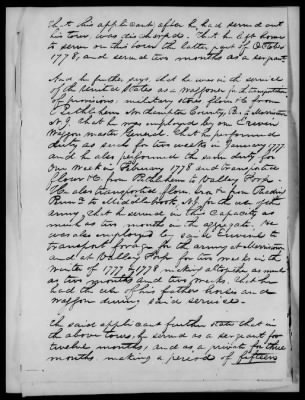 that this applicant after he had served out
his tour, was discharged. That he left home
to serve on this tour the latter part of October
1778, and served two months as a sergeant.
And he further says, that he was in the service
of the United States as a Waggoner in the transportation
of provisions, military stores flour &c from
Bethlehem Northampton County, Pa. to Morristown
N J. That he was employed by one
Waggon master General. That he performed
duty as such for two weeks in January 1777
and he also performed the same duty for
one week in February 1778 and transported
flour &c from to Valley Forge.
He also transported flour &c from Reading
Penna to Middlebrook, N.J. for the use of the
army, that he served in this capacity as
much as two months in the aggregate. He
was also employed by said to
transport forage for the army at Morristown
and at Valley Forge for two weeks in the
winter of 1777 & 1778 making altogether as much
as two months and two weeks. That he
had the use of his father horses and
waggon during said service.
The said applicant further states that in
the above tours, he served as a sergeant for
twelve months, and as a private for three
months making a period of fifteen